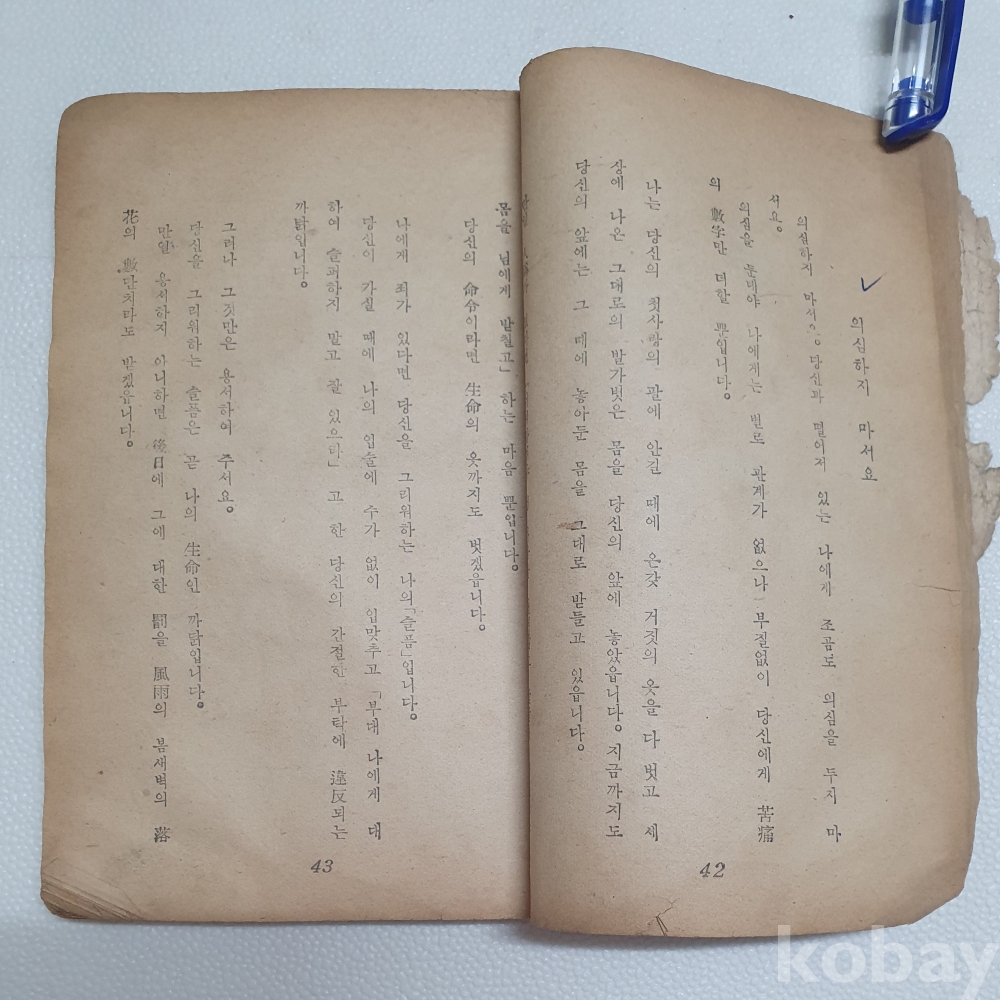 의심하지 마서요
의심하지 마서요。당신과 떨어저 있는 나에게 조곰도 의심을 두지 마
서요。
의심을 둔대야 나에게는 별로 관계가 없으나 부질없이 당신에게 苦痛
의 數字만 더할 뿐입니다。
나는 당신의 첫사랑의 팔에 안길 때에 온갖 거짓의 옷을 다 벗고 세
상에 나은 그대로의 발가벗은 몸을 당신의 앞에 놓았읍니다。지금까지도
당신의 앞에는 그 때에 놓아둔 몸을 그대로 받들고 있읍니다。
42
몸을 님에게 받칠고」하는 마음 뿐입니다。
당신의 命令이라면 生命의 옷까지도 벗겠읍니다。
나에게 죄가 있다면 당신을 그리워하는 나의「슬픔」입니다。
당신이 가실 때에 나의 입술에 수가 없이 입맞추고「부대 나에게 대
하여 슬퍼하지 말고 잘 있으라」고 한 당신의 간절한 부탁에 違反되는
까닭입니다。
그러나 그것만은 용서하여 주서요。
당신을 그리워하는 슬픔은 곧 나의 生命인 까닭입니다。
만일 용서하지 아니하면 後日에 그에 대한 罰을 風雨의 봄새벽의 落
花의 數만치라도 받겠읍니다。
43
kobay